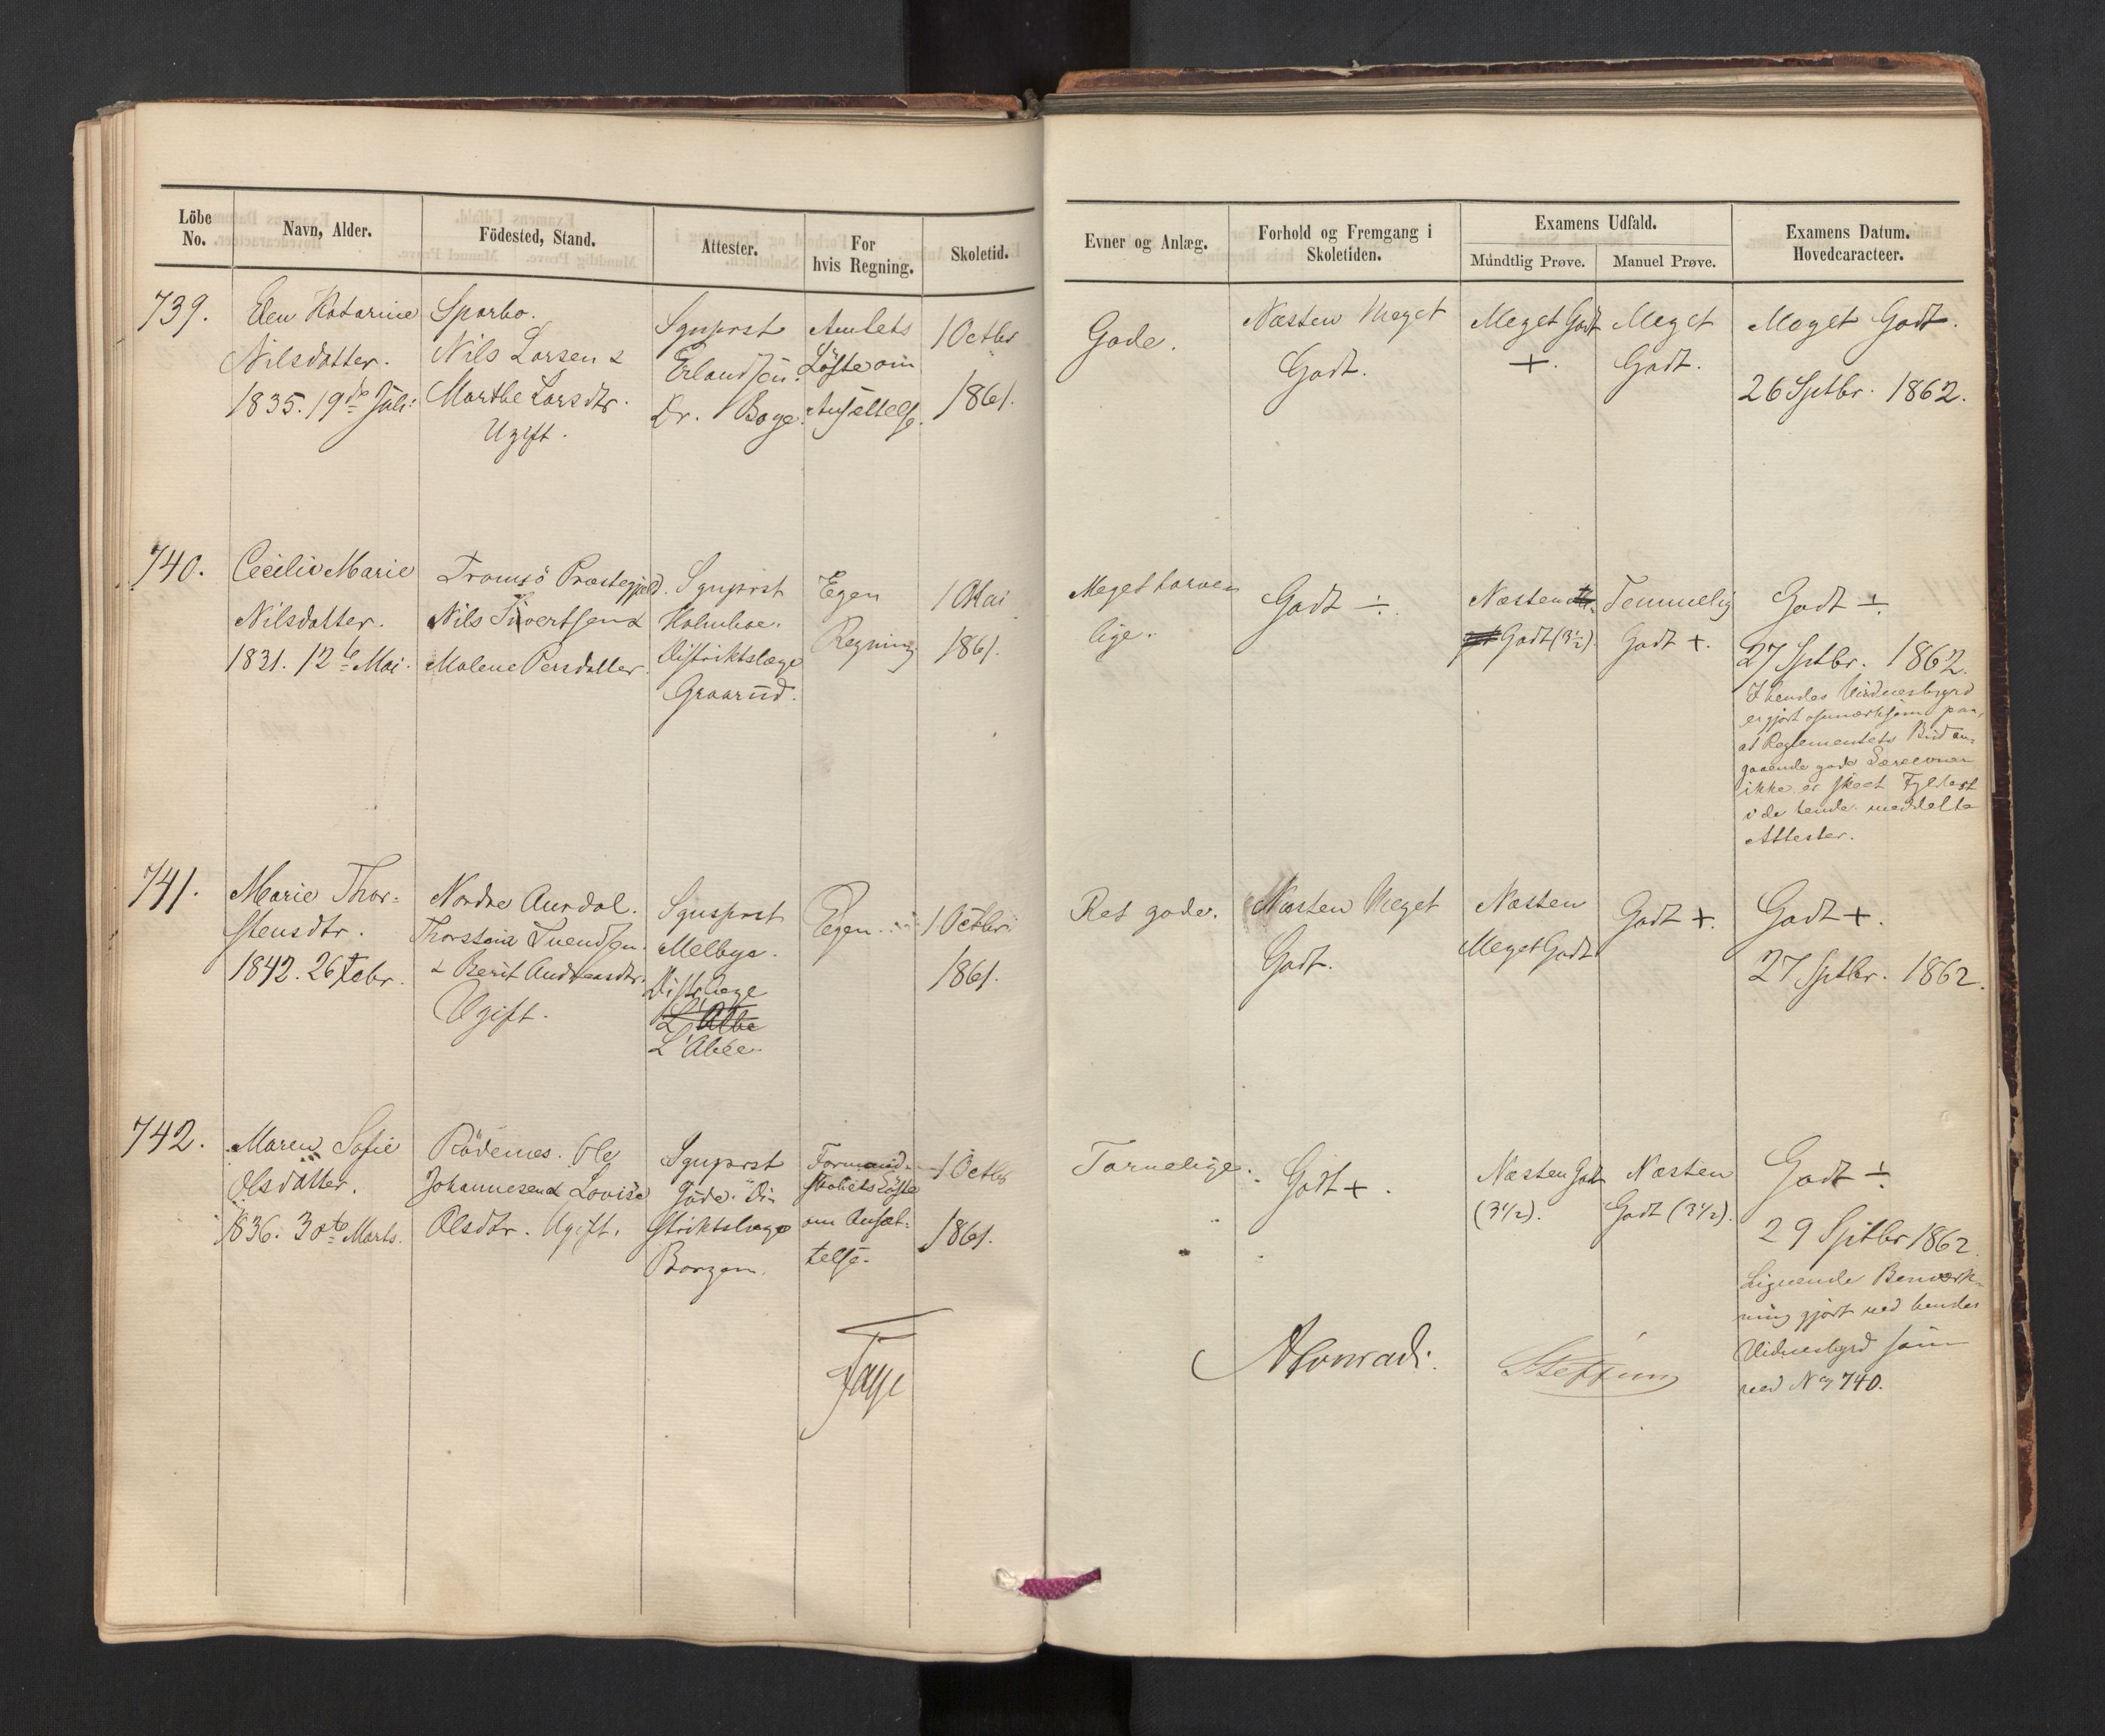 Löbe No.
Navn, Alder.
Födested, Stand.
Attester.
For hvis Regning.
Skoletid.
Evner og Anlæg.
Forhold og Fremgang i Skoletiden.
Examens Udfald.
Mündtlig Prøve.
Manuel Prøve.
Examens Datum.
Hovedcaracteer.
739.
Elen Katarine
Nilsdatter.
1835. 19de Juli
Sparbo.
Nils Larsen &
Marthe Larsdtr.
Ugift.
Sgnprst
Erlandsen.
Dr. Boye.
Amtets
Löfte om
Ansættelse.
1 Octbr
1861.
Gode.
Næsten Meget
Godt.
Meget Godt
+.
Meget
Godt.
Meget Godt.
26 Sptbr. 1862.
740.
Cecilie Marie
Nilsdatter.
1831. 12te Mai.
Tromsö Præstegjæld.
Nils Sivertsen &
Malene Persdatter.
Sgnprst
Holmboe.
Distriktslæge
Graarud.
Egen
Regning
1 Mai
1861.
Meget tarve-
lige.
Godt ÷.
Næsten
Godt (3½).
Temmelig
Godt +.
Godt ÷.
27 Sptbr. 1862.
I hendes Vidnesbyrd
er gjort opmærksom paa,
at Reglementets Bud an-
gaaende gode Læreevner
ikke er skeet Fyldest
i de hende meddelte
Attester.
741.
Marie Thor-
stensdtr.
1842. 26 Febr.
Nordre Aurdal.
Thorstein Svendsen
& Berit Andreasdtr.
Ugift.
Sgnsprst
Melbye.
Distrlæge
L'Abée.
Egen
1 Octbr
1861.
Ret gode.
Næsten Meget
Godt.
Næsten
Meget Godt
Godt +.
Godt +.
27 Sptbr. 1862.
742.
Maren Sofie
Olsdatter.
1836. 30te Marts.
Rödenes. Ole
Johannesen & Lovise
Olsdtr. Ugift.
Sgnprst
Gude. Di-
striktslæge
Borgen.
Formand-
skabets Löfte
om Ansæt-
telse.
1 Octbr
1861.
Tarvelige.
Godt +.
Næsten Godt
(3½).
Næsten
Godt (3½).
Godt ÷.
29 Sptbr 1862.
Lignende Bemærk-
ning gjort ved hendes
Vidnesbyrd som
ved No 740.
Faye
AConradi.
Steffens